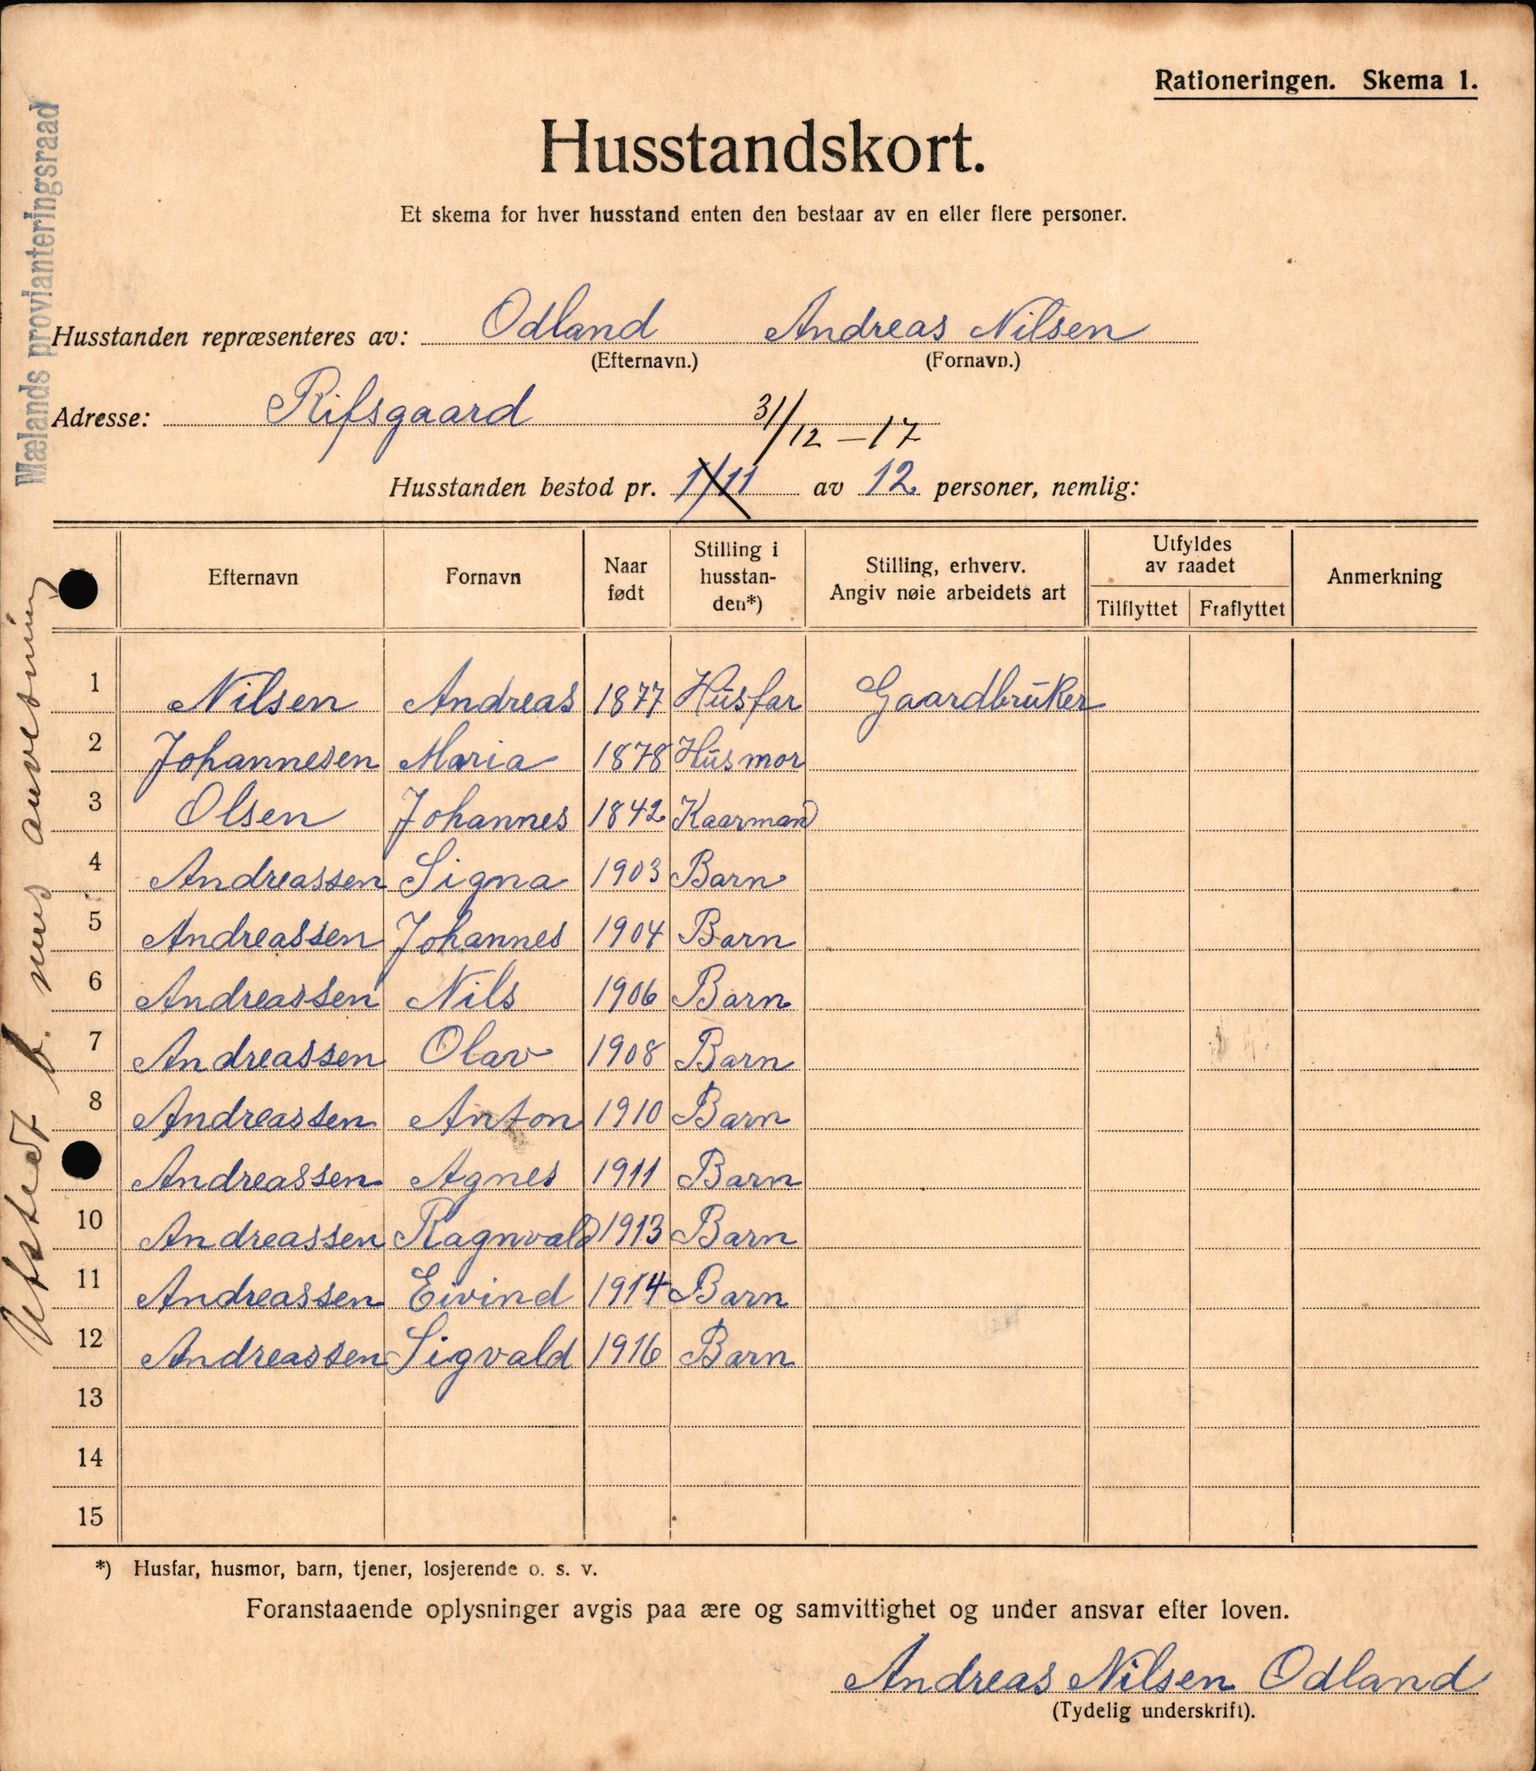 Rationeringen. Skema 1.
Mælands provianteringsraad
Husstandskort.
Et skema for hver husstand enten den bestaar av en eller flere personer.
Husstanden repræsenteres av: Odland Andreas Nilsen
(Efternavn.) (Fornavn.)
Adresse: Rifsgaard 31/12-17
Husstanden bestod pr. 1/11 av 12 personer, nemlig:
Efternavn Fornavn Naar født Stilling i husstan-den*) Stilling, erhverv. Angiv nøie arbeidets art Utfyldes av raadet Tilflyttet Fraflyttet Anmerkning
1 Nilsen Andreas 1877 Husfar Gaardbruker
2 Johannesen Maria 1878 Husmor
3 Olsen Johannes 1842 Kaarmand
4 Andreassen Signa 1903 Barn
5 Andreassen Johannes 1904 Barn
6 Andreassen Nils 1906 Barn
7 Andreassen Olav 1908 Barn
8 Andreassen Anton 1910 Barn
Andreassen Agnes 1911 Barn
10 Andreassen Ragnvald 1913 Barn
11 Andreassen Eivind 1914 Barn
12 Andreassen Sigvald 1916 Barn
13
14
15
*) Husfar, husmor, barn, tjener, losjerende o. s. v.
Foranstaaende oplysninger avgis paa ære og samvittighet og under ansvar efter loven.
Andreas Nilsen Odland
(Tydelig underskrift).
Utstedt anvesning